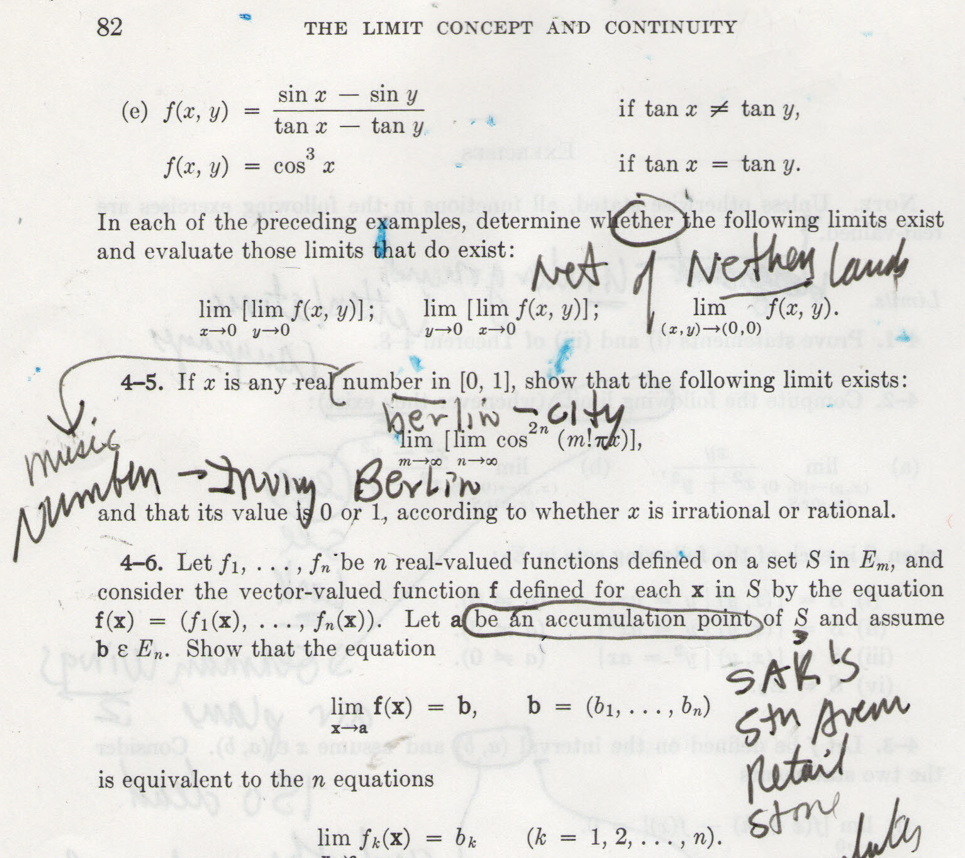 82 THE LIMIT CONCEPT AND CONTINUITY
(e) f(x, y) = (sin x − sin y)/(tan x − tan y) if tan x ≠ tan y,
f(x, y) = cos³ x if tan x = tan y.
In each of the preceding examples, determine whether the following limits exist
and evaluate those limits that do exist:
Net of Netherlands
lim x→0 [lim y→0 f(x, y)]; lim y→0 [lim x→0 f(x, y)]; lim (x,y)→(0,0) f(x, y).
4–5. If x is any real number in [0, 1], show that the following limit exists:
berlin – city
lim m→∞ [lim n→∞ cos²ⁿ (m!πx)],
music
Number → Irving Berlin
and that its value is 0 or 1, according to whether x is irrational or rational.
4–6. Let f₁, . . . , fₙ be n real-valued functions defined on a set S in Eₘ, and
consider the vector-valued function f defined for each x in S by the equation
f(x) = (f₁(x), . . . , fₙ(x)). Let a be an accumulation point of S and assume
b ε Eₙ. Show that the equation
SAK is
lim x→a f(x) = b, b = (b₁, . . . , bₙ)
5th Aven
is equivalent to the n equations
Retail
store
lim fₖ(x) = bₖ (k = 1, 2, . . . , n).